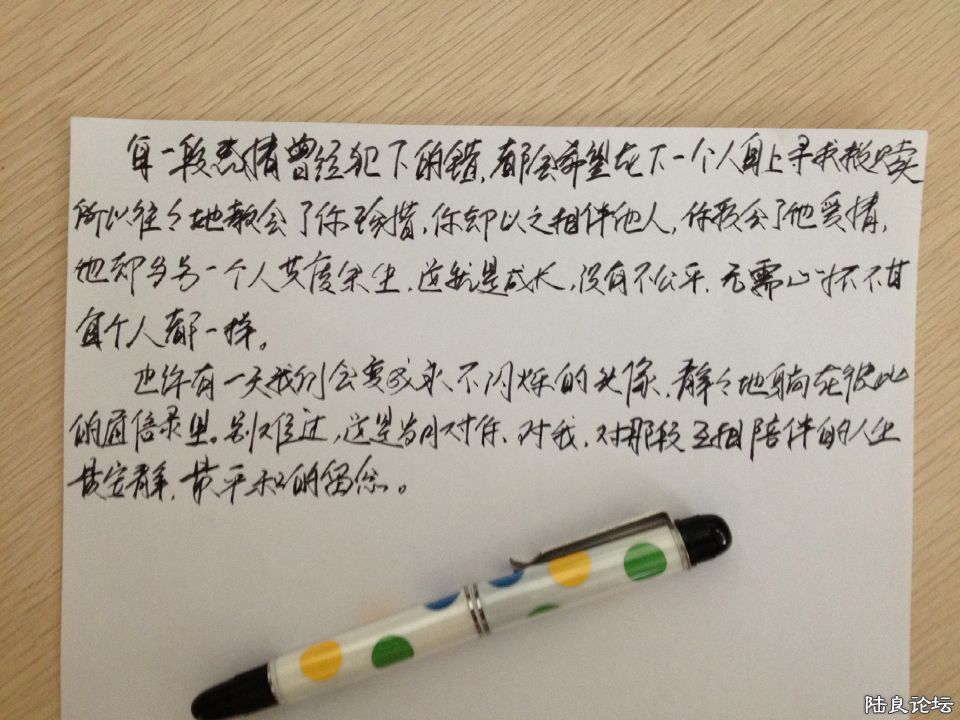 每一段感情曾经犯下的错,都会希望在下一个人身上寻找救赎
所以往々她教会了你珍惜,你却以之相伴他人,你教会了他爱情,
他却与另一个人共度余生,这就是成长,没有不公平,无需心怀不甘
每个人都一样。
也许有一天我们会变成永不闪烁的头像,静々地躺在彼此
的通信录里。别难过,这是当时对你、对我,对那段互相陪伴的人生
最安静,最平和的留念。
陆良论坛